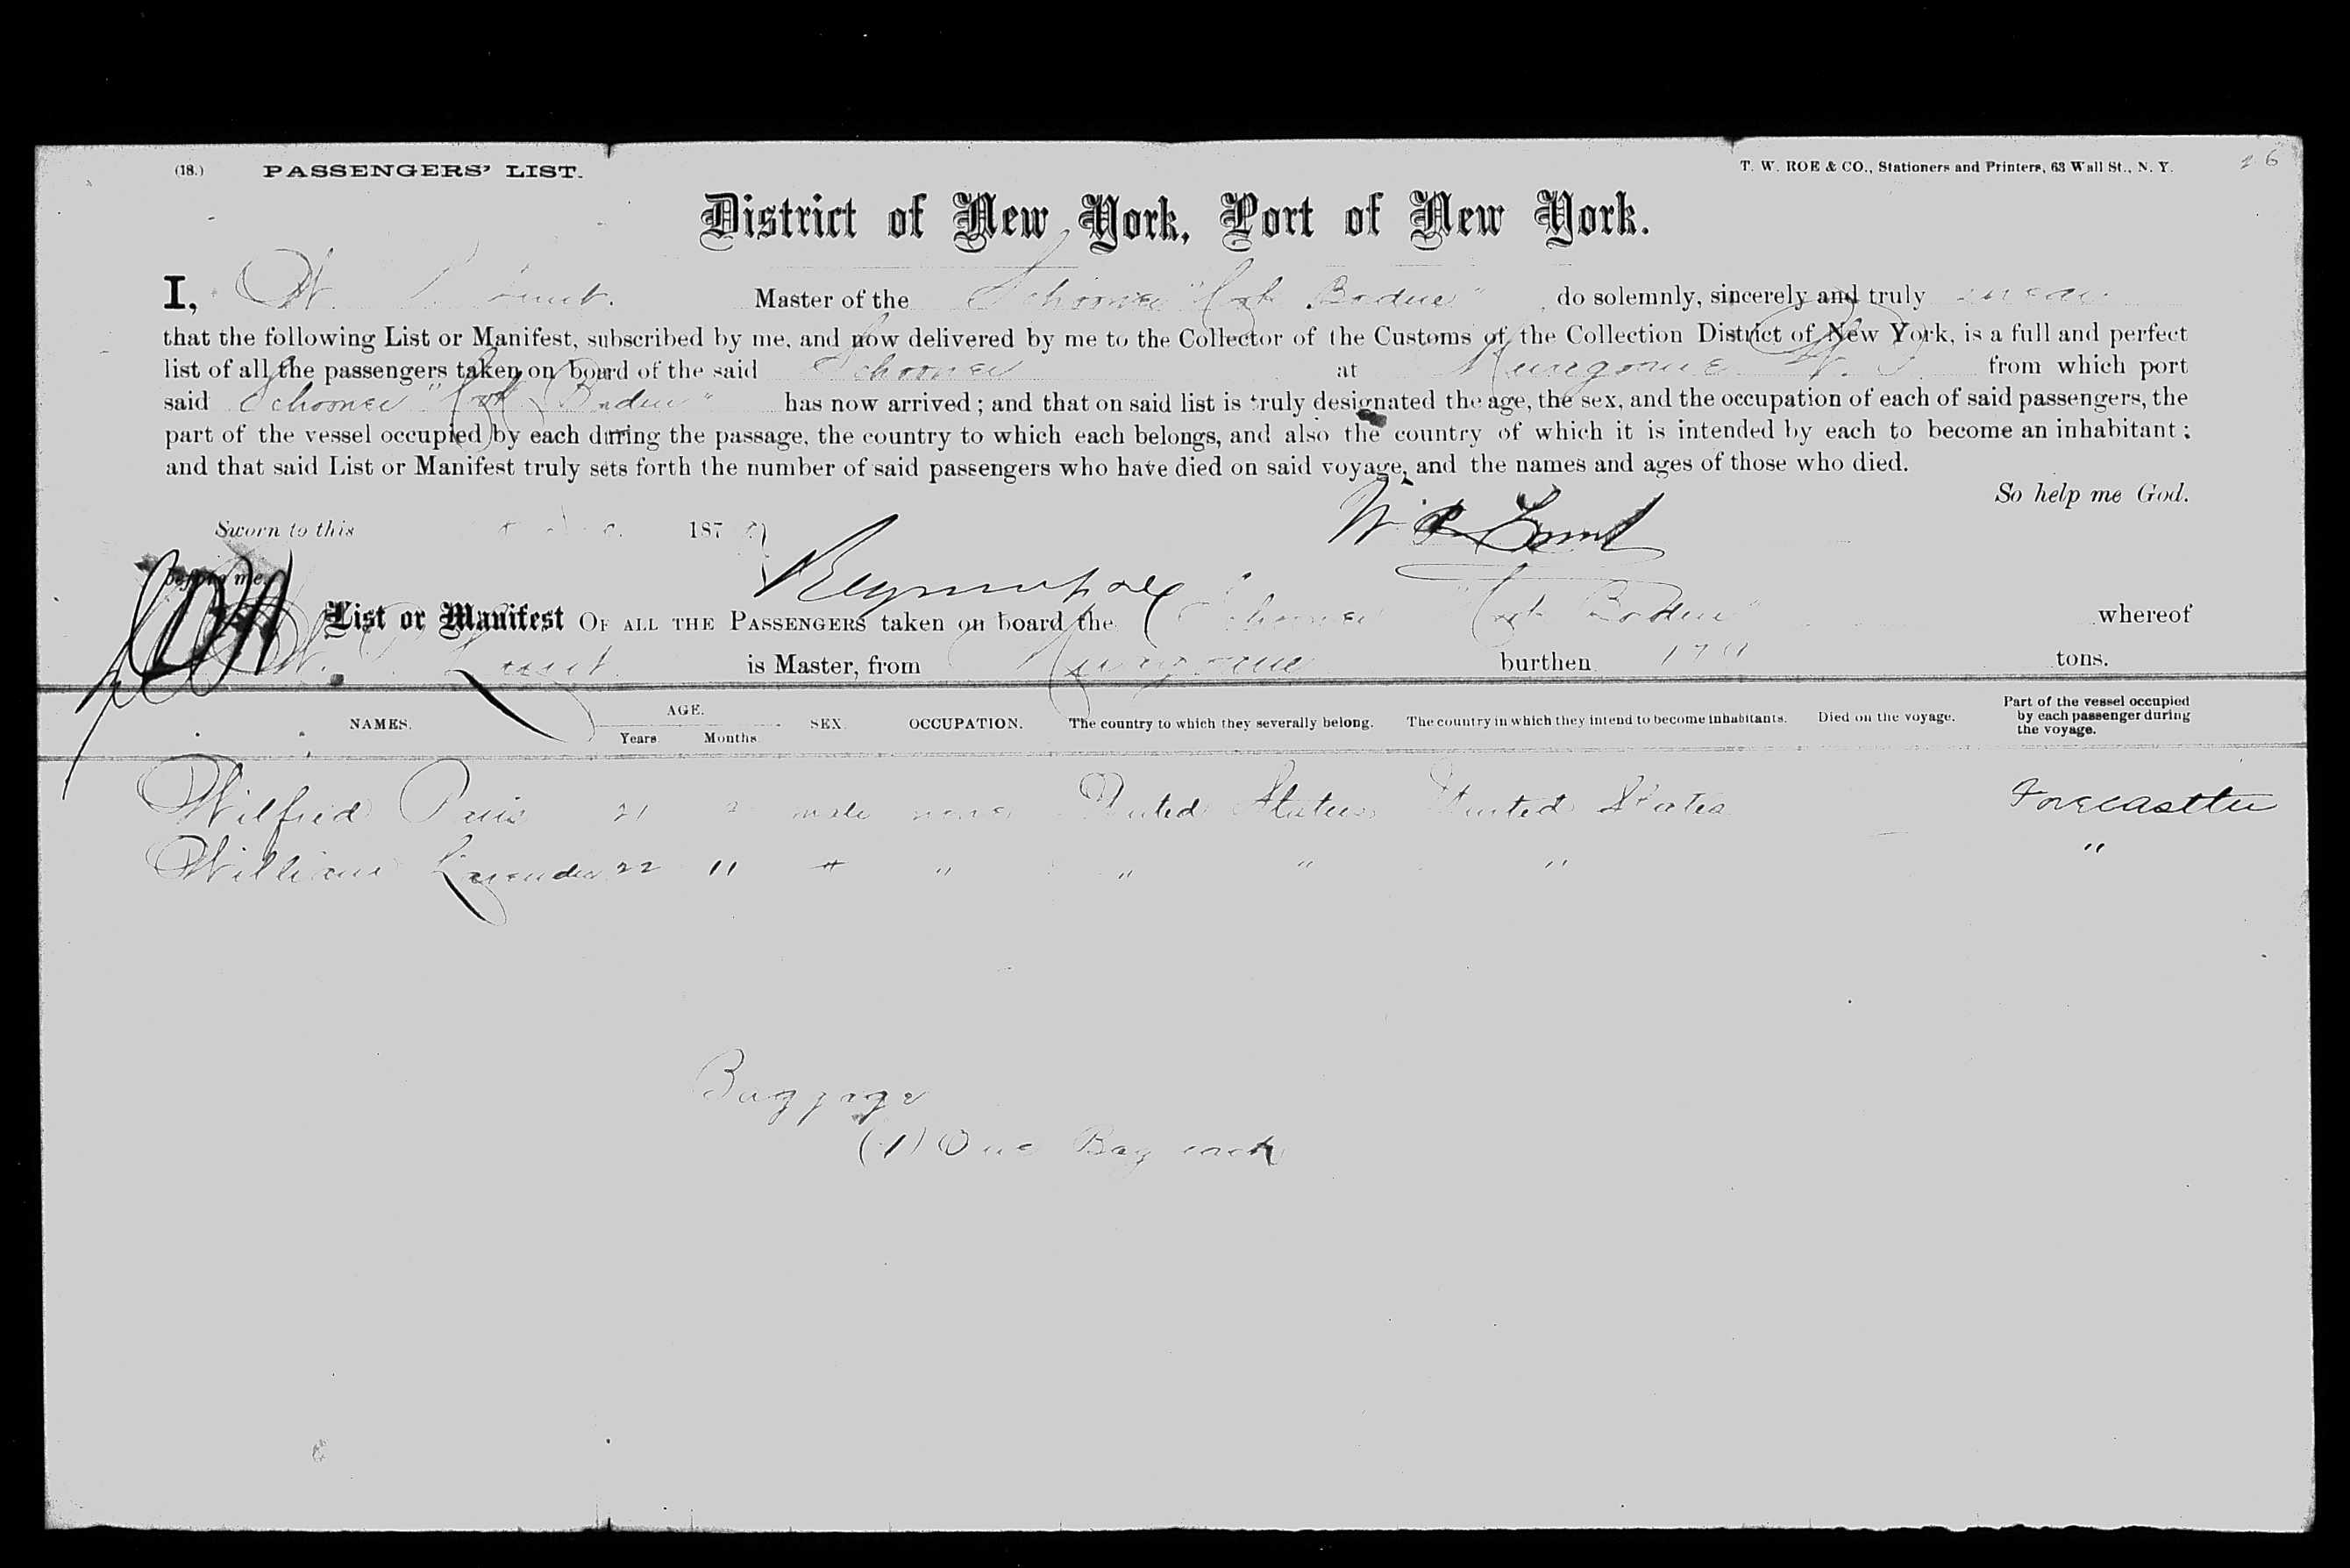 (18.) PASSENGERS' LIST. T. W. ROE & CO., Stationers and Printers, 63 Wall St., N. Y. 26
District of New York, Port of New York.
I, W. Master of the Schooner do solemnly, sincerely and truly swear
that the following List or Manifest, subscribed by me, and now delivered by me to the Collector of the Customs of the Collection District of New York, is a full and perfect
list of all the passengers taken on board of the said Schooner at from which port
said Schooner has now arrived; and that on said list is truly designated the age, the sex, and the occupation of each of said passengers, the
part of the vessel occupied by each during the passage, the country to which each belongs, and also the country of which it is intended by each to become an inhabitant;
and that said List or Manifest truly sets forth the number of said passengers who have died on said voyage, and the names and ages of those who died.
So help me God.
Sworn to this 187
before me
List or Manifest OF ALL THE PASSENGERS taken on board the Schooner whereof
W. is Master, from burthen tons.
NAMES. AGE. Years Months SEX. OCCUPATION. The country to which they severally belong. The country in which they intend to become inhabitants. Died on the voyage. Part of the vessel occupied by each passenger during the voyage.
Wilfred 21 male none United States United States Forecastle
William 22 " " " " " " "
Baggage
(1) One Bag each